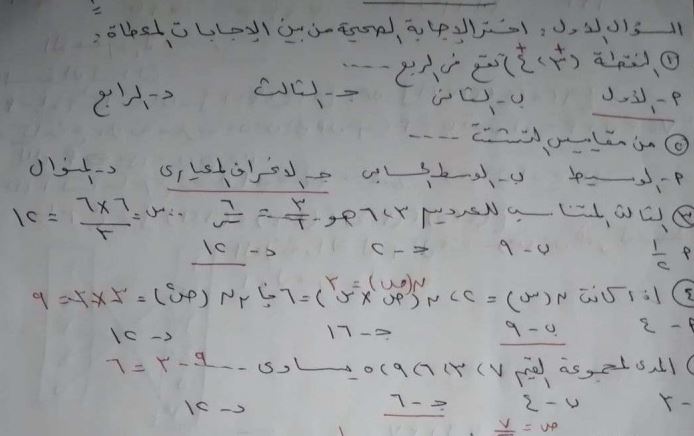 السؤال الأول: اختر الإجابة الصحيحة من بين الإجابات المعطاة:
① النقطة (٣، ٤) تقع في الربع ....
+ +
أ- الأول ب- الثاني ج- الثالث د- الرابع
② من مقاييس التشتت ....
أ- الوسيط ب- الوسط الحسابي ج- الانحراف المعياري د- المنوال
③ الثالث المتناسب للعددين ٣، ٦ هو ٣/٦ = ٦/س ∴ س = ٦×٦/٣ = ١٢
أ ١/٢ ب- ٩ ج- ٢ د- ١٢
④ إذا كانت ن(س) = ٢، ن(س × ص) = ٦ فإن ن(ص٢) = ٣×٣ = ٩
ن(ص) = ٣
أ- ٤ ب- ٩ ج- ١٦ د- ١٢
المدى لمجموعة القيم ٧، ٣، ٦، ٩، ٥ يساوي ... ٩-٣ = ٦
٣ ب- ٤ ج- ٦ د- ١٢